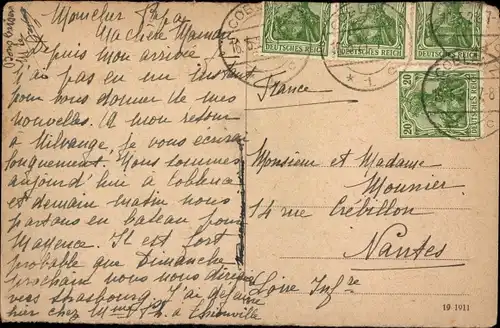 Mon cher Papa
Ma chère Maman
Depuis mon arrivée
j'ai pas eu un instant
pour vous donner de mes
nouvelles. A mon retour
à Nilvange, je vous écrirai
longuement. Nous sommes
aujourd'hui à Coblence
et demain matin nous
partons en bateau pour
Mayence. Il est fort
probable que Dimanche
prochain nous nous dirigerons
vers Strasbourg. J'ai déjeuné
hier chez Mme à Thionville
Bons baisers
COBL
DEUTSCHES REICH
DEUTSCHES REICH
DEUTSCHES REICH
20 20
France
Monsieur et Madame
Mounier
14 rue Crébillon
Nantes
Loire Infre
19 1911